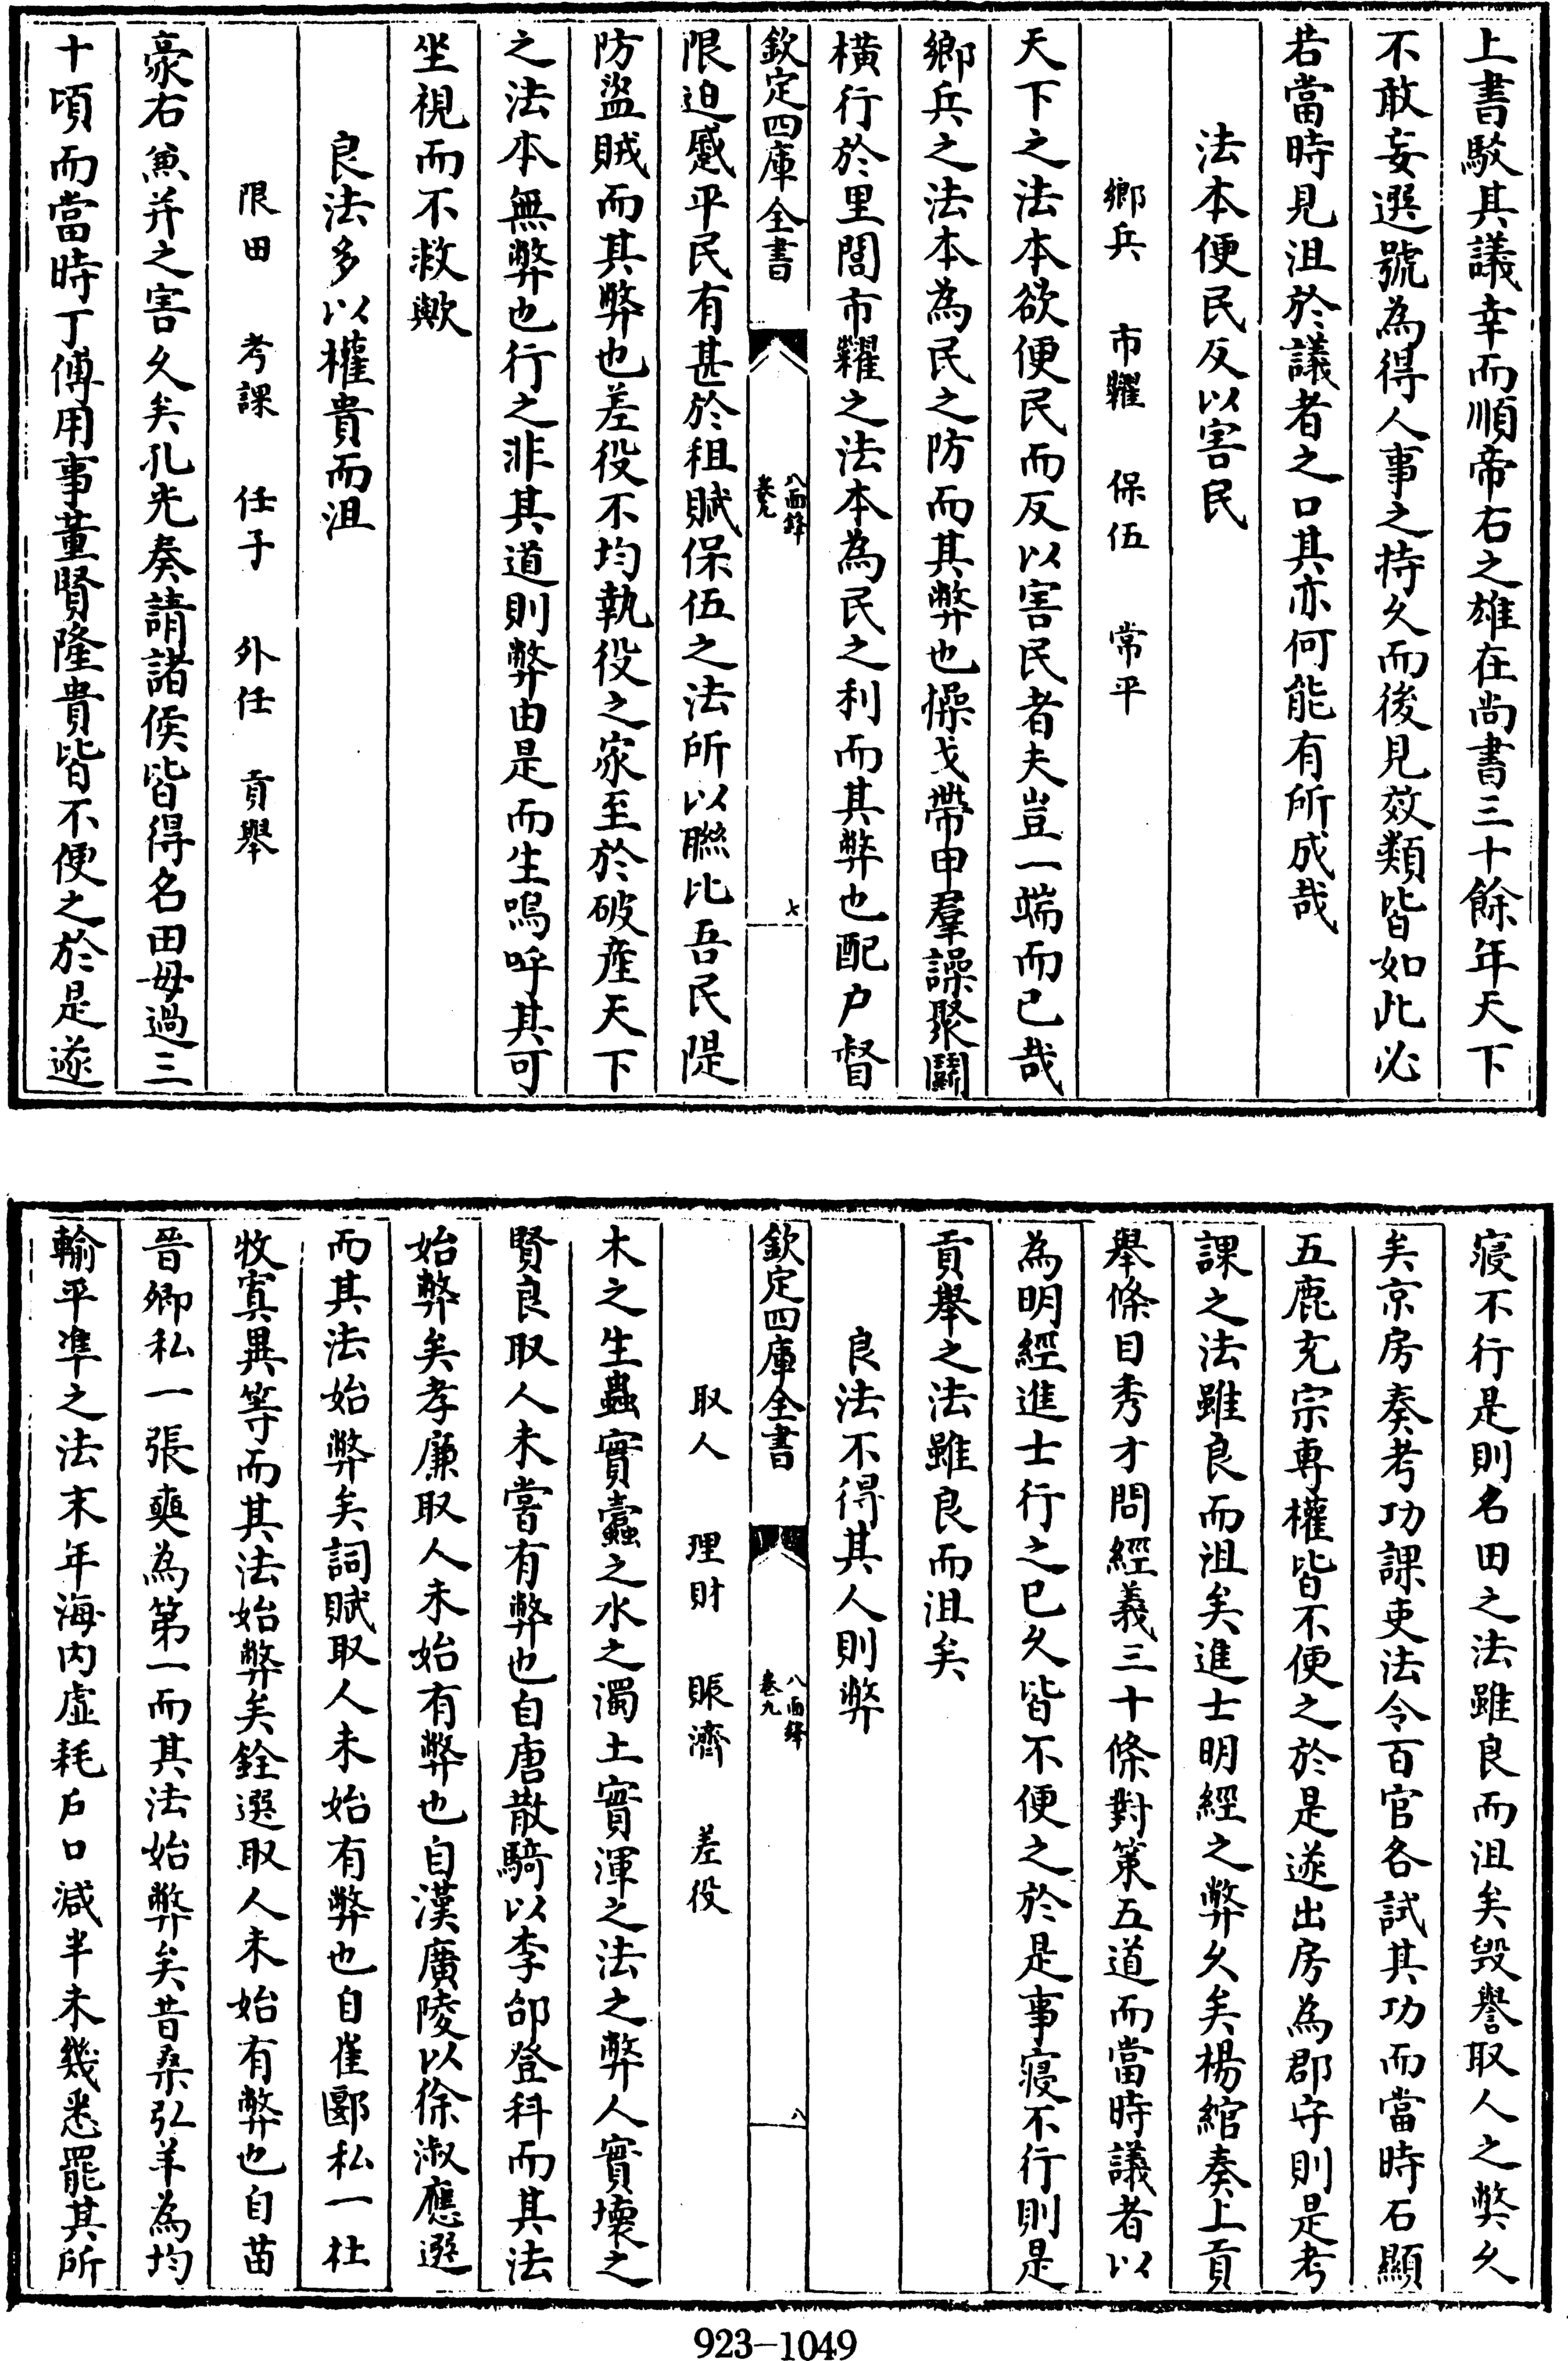 上書駮其議幸而順帝右之雄在尚書三十餘年天下
不敢妄選號為得人事之持久而後見效類皆如此必
若當時見沮於議者之口其亦何能有所成哉
法本便民反以害民
鄉兵 市糴 保伍 常平
天下之法本欲便民而反以害民者夫豈一端而已哉
鄉兵之法本為民之防而其弊也懆戈帶甲羣譟聚鬬
橫行於里閭市糴之法本為民之利而其弊也配户督
欽定四庫全書 八面鋒 卷九 七
限迫蹙平民有甚於租賦保伍之法所以聯比吾民隄
防盜賊而其弊也差役不均執役之家至於破產天下
之法本無弊也行之非其道則弊由是而生嗚呼其可
坐視而不救歟
良法多以權貴而沮
限田 考課 任子 外任 貢舉
豪右兼并之害久矣孔光奏請諸侯皆得名田毋過三
十頃而當時丁傅用事董賢隆貴皆不便之於是遂
寢不行是則名田之法雖良而沮矣毀譽取人之弊久
矣京房奏考功課吏法令百官各試其功而當時石顯
五鹿充宗專權皆不便之於是遂出房為郡守則是考
課之法雖良而沮矣進士明經之弊久矣楊綰奏上貢
舉條目秀才問經義三十條對策五道而當時議者以
為明經進士行之已久皆不便之於是事寢不行則是
貢舉之法雖良而沮矣
良法不得其人則弊
欽定四庫全書 八面鋒 卷九 八
取人 理財 賑濟 差役
木之生蟲實蠹之水之濁土實渾之法之弊人實壞之
賢良取人未嘗有弊也自唐散騎以李郃登科而其法
始弊矣孝廉取人未始有弊也自漢廣陵以徐淑應選
而其法始弊矣詞賦取人未始有弊也自崔郾私一杜
牧寘異等而其法始弊矣銓選取人未始有弊也自苗
晉卿私一張奭為第一而其法始弊矣昔桑弘羊為均
輸平準之法末年海內虛耗戶口減半未幾悉罷其所
923-1049